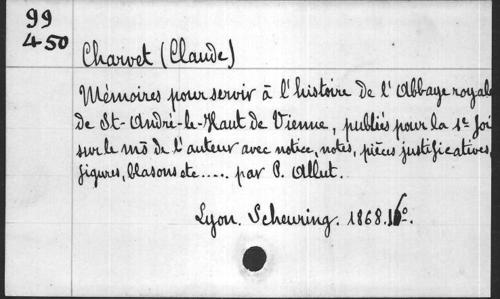 99
450
Charvet (Claude)
Mémoires pour servir à l'histoire de l'Abbaye royale
de St-André-le-Haut de Vienne, publiés pour la 1e foi
sur le ms de l'auteur avec notice, notes, pièces justificatives,
figures, blasons etc..... par P. Allut.
Lyon. Scheuring. 1868. 16º.